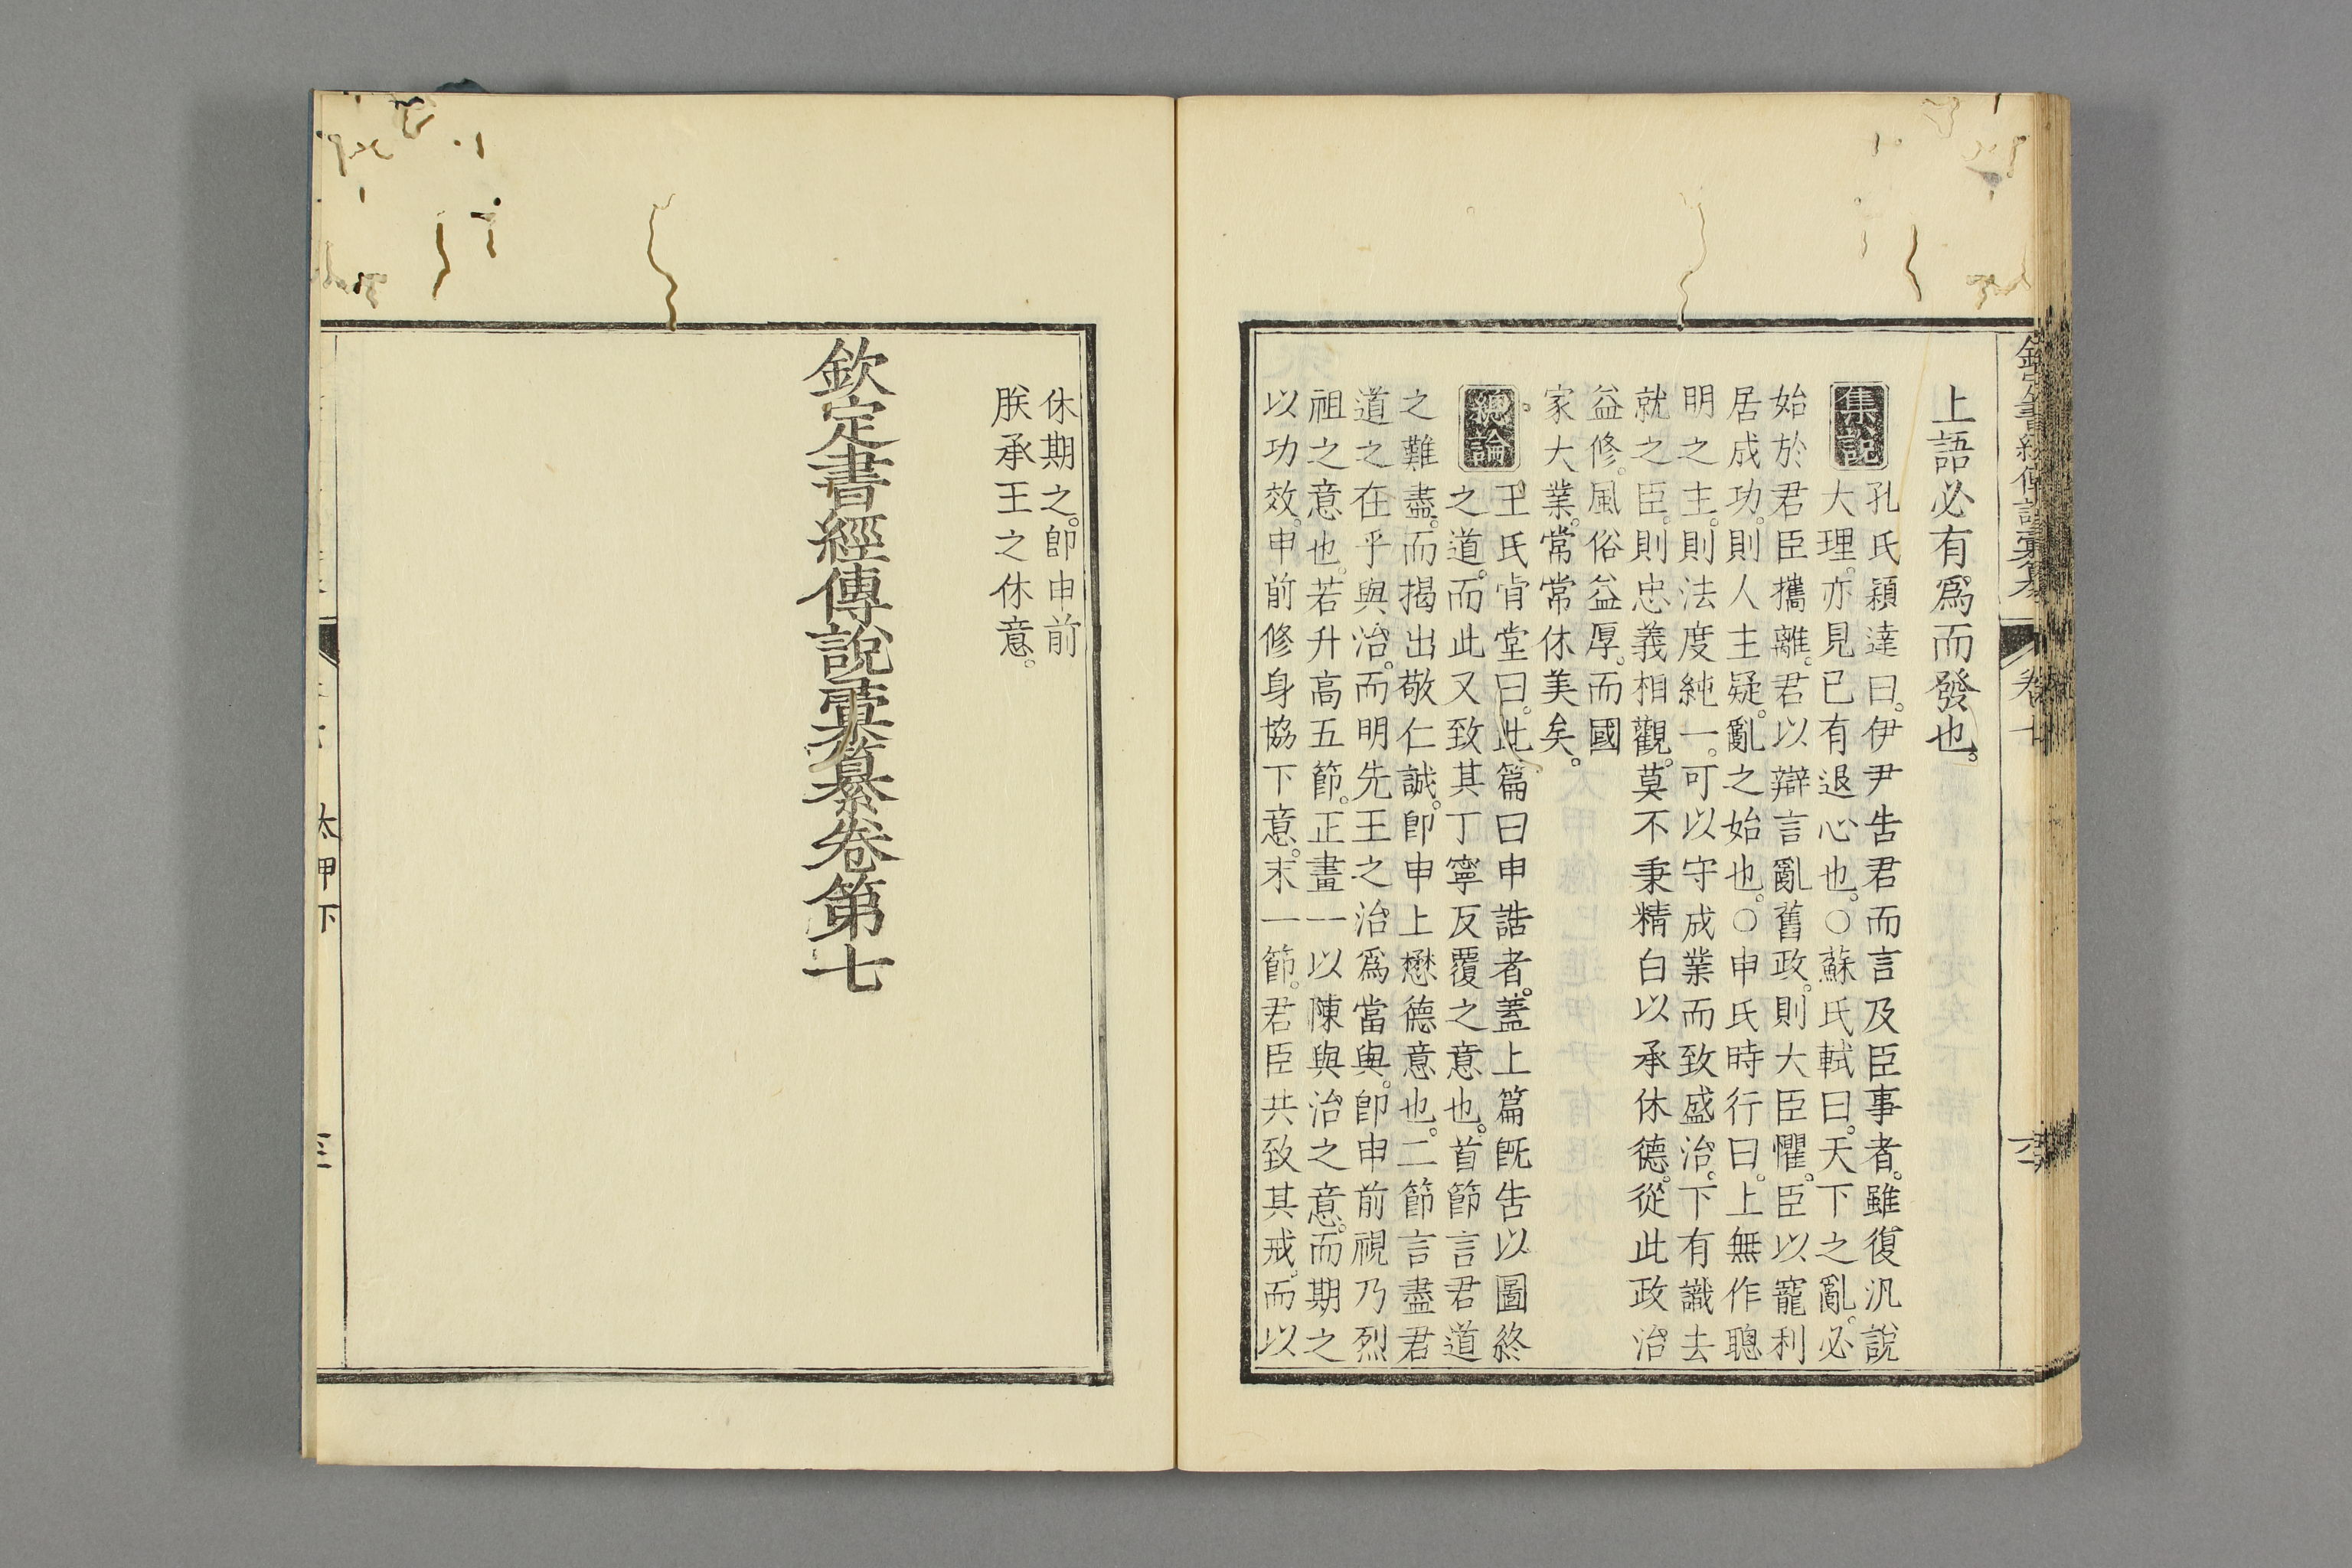 欽定書經傳說彙纂
卷七
上語必有爲而發也。
集說
孔氏穎達曰。伊尹告君而言及臣事者。雖復汎說
大理。亦見已有退心也。○蘇氏軾曰。天下之亂。必
始於君臣攜離。君以辯言亂舊政。則大臣懼。臣以寵利
居成功。則人主疑。亂之始也。○申氏時行曰。上無作聰
明之主。則法度純一。可以守成業而致盛治。下有識去
就之臣。則忠義相觀。莫不秉精白以承休德。從此政治
益修。風俗益厚。而國
家大業。常常休美矣。
總論
王氏肯堂曰。此篇曰申誥者。蓋上篇旣告以圖終
之道。而此又致其丁寧反覆之意也。首節言君道
之難盡。而揭出敬仁誠。卽申上懋德意也。二節言盡君
道之在乎與治。而明先王之治爲當與。卽申前視乃烈
祖之意也。若升高五節。正畫一以陳與治之意。而期之
以功效。申前修身協下意。末一節。君臣共致其戒。而以
休期之。卽申前
朕承王之休意。
欽定書經傳說彙纂卷第七
太甲下
三